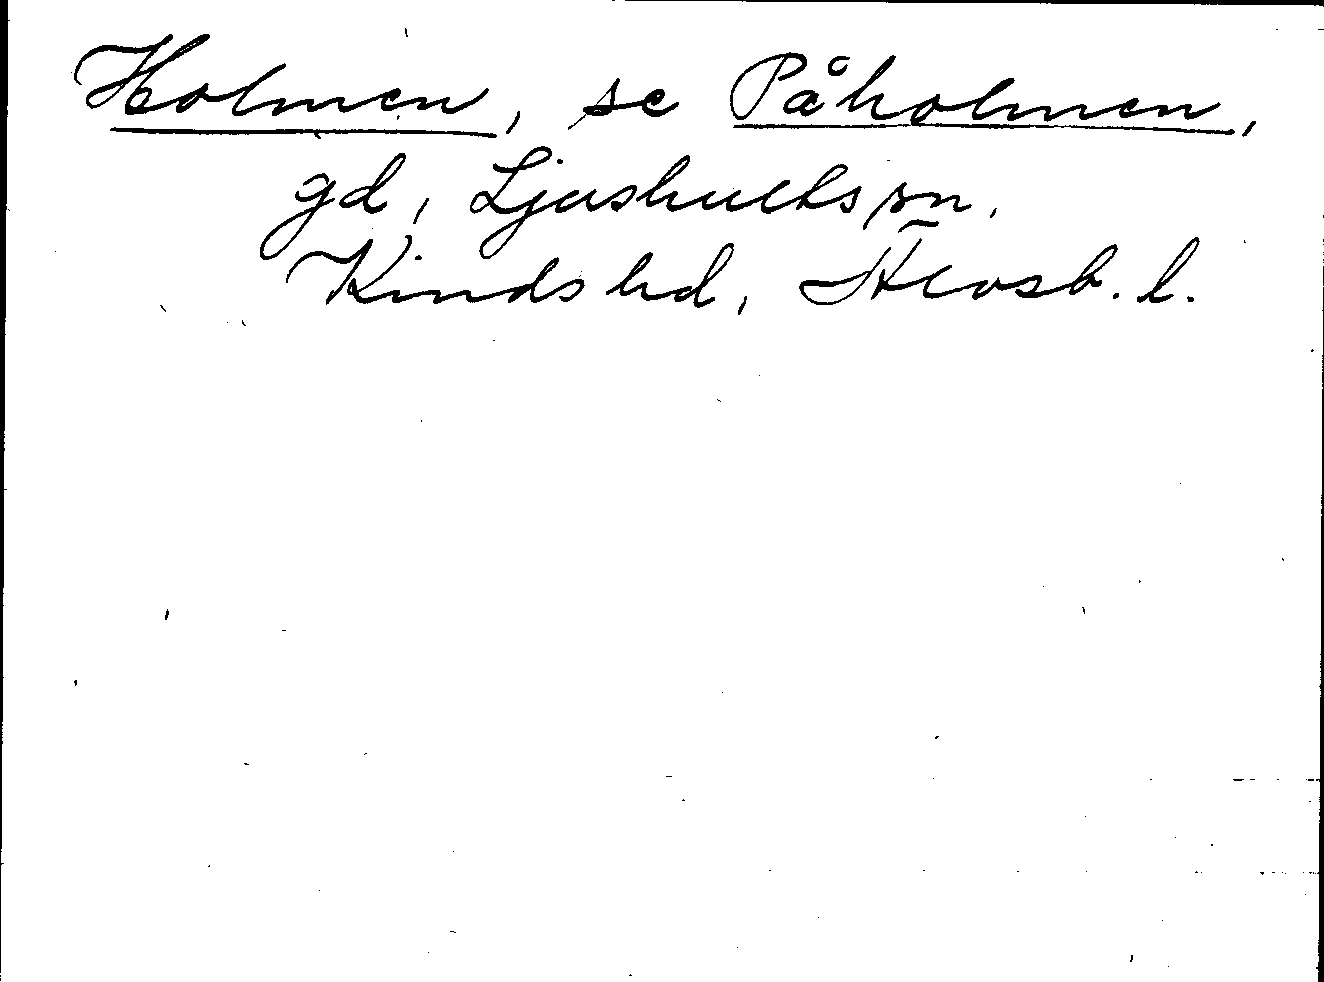 Holmen, se Påholmen,
gd, Ljushults sn,
Kinds hd, Älvsb. l.